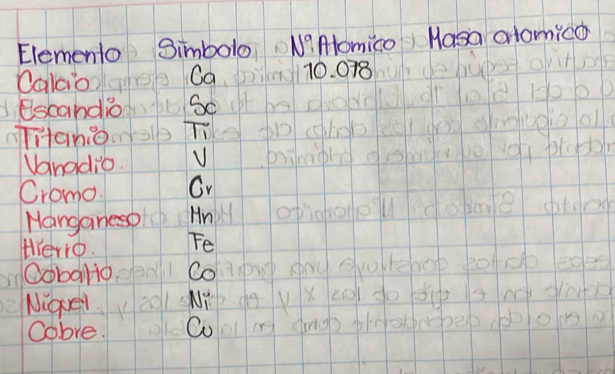 Elemento Simbolo Nº Atomico Masa atomico
Calcio Ca 10.078
Escandio Sc
Titanio Ti
Vanadio. V
Cromo. Cr
Manganeso Mn
Hierro. Fe
Cobalto. Co
Niquel. Ni
Cobre. Cu